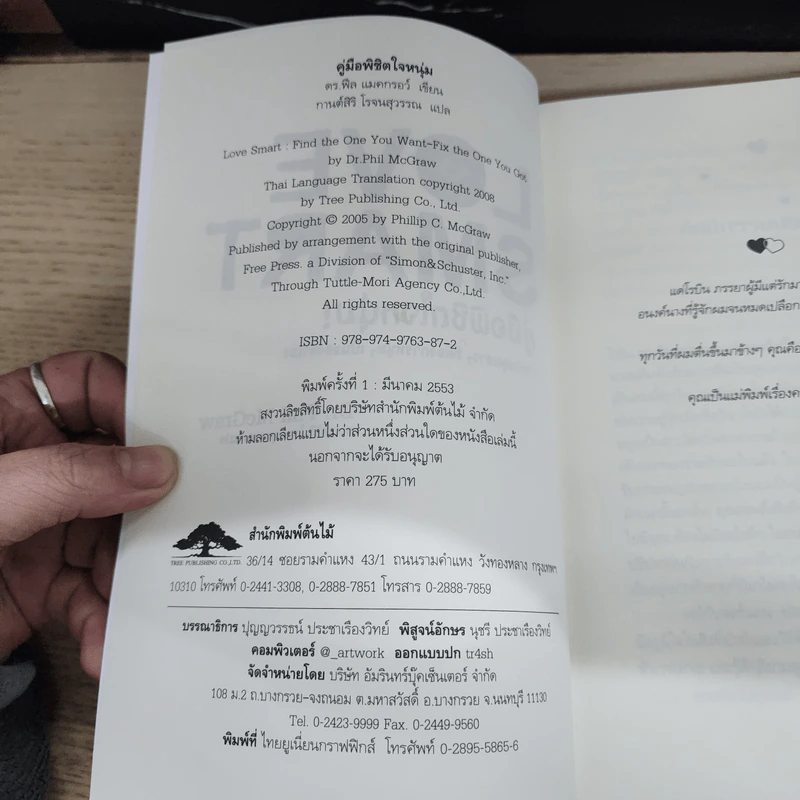 คู่มือพิชิตใจหนุ่ม
ดร.ฟิล แมคกรอว์ เขียน
กานต์สิริ โรจนสุวรรณ แปล
Love Smart : Find the One You Want-Fix the One You Got
by Dr.Phil McGraw
Thai Language Translation copyright 2008
by Tree Publishing Co., Ltd.
Copyright © 2005 by Phillip C. McGraw
Published by arrangement with the original publisher,
Free Press. a Division of "Simon&Schuster, Inc."
Through Tuttle-Mori Agency Co.,Ltd.
All rights reserved.
ISBN : 978-974-9763-87-2
พิมพ์ครั้งที่ 1 : มีนาคม 2553
สงวนลิขสิทธิ์โดยบริษัทสำนักพิมพ์ต้นไม้ จำกัด
ห้ามลอกเลียนแบบไม่ว่าส่วนหนึ่งส่วนใดของหนังสือเล่มนี้
นอกจากจะได้รับอนุญาต
ราคา 275 บาท
สำนักพิมพ์ต้นไม้
TREE PUBLISHING CO.,LTD. 36/14 ซอยรามคำแหง 43/1 ถนนรามคำแหง วังทองหลาง กรุงเทพฯ
10310 โทรศัพท์ 0-2441-3308, 0-2888-7851 โทรสาร 0-2888-7859
บรรณาธิการ ปุญญวรรธน์ ประชาเรืองวิทย์ พิสูจน์อักษร นุชรี ประชาเรืองวิทย์
คอมพิวเตอร์ @_artwork ออกแบบปก tr4sh
จัดจำหน่ายโดย บริษัท อัมรินทร์บุ๊คเซ็นเตอร์ จำกัด
108 ม.2 ถ.บางกรวย-จงถนอม ต.มหาสวัสดิ์ อ.บางกรวย จ.นนทบุรี 11130
Tel. 0-2423-9999 Fax. 0-2449-9560
พิมพ์ที่ ไทยยูเนี่ยนกราฟฟิกส์ โทรศัพท์ 0-2895-5865-6
แด่โรบิน ภรรยาผู้มีแต่รักมา
อนงค์นางที่รู้จักผมจนหมดเปลือก
ทุกวันที่ผมตื่นขึ้นมาข้างๆ คุณคือ
คุณเป็นแม่พิมพ์เรื่องค